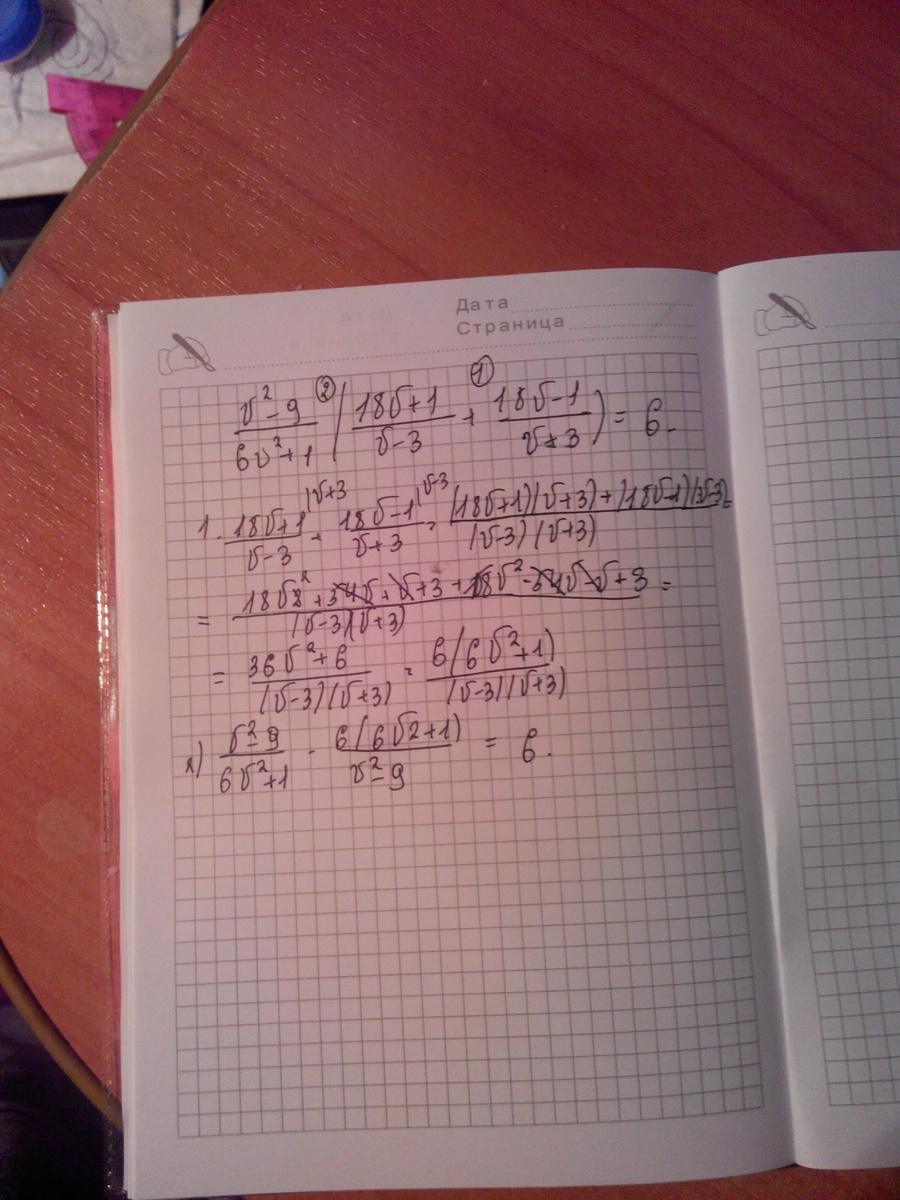 Дата
Страница
② ①
(v² - 9)/(6v² + 1) ((18v+1)/(v-3) + (18v-1)/(v+3)) = 6.
1. (18v+1)/(v-3) |v+3 + (18v-1)/(v+3) |v-3 = ((18v+1)(v+3) + (18v-1)(v-3))/((v-3)(v+3)) =
= (18v² + 54v + v + 3 + 18v² - 54v - v + 3)/((v-3)(v+3)) =
= (36v² + 6)/((v-3)(v+3)) = 6(6v² + 1)/((v-3)(v+3))
2) (v² - 9)/(6v² + 1) · 6(6v2+1)/(v² - 9) = 6.